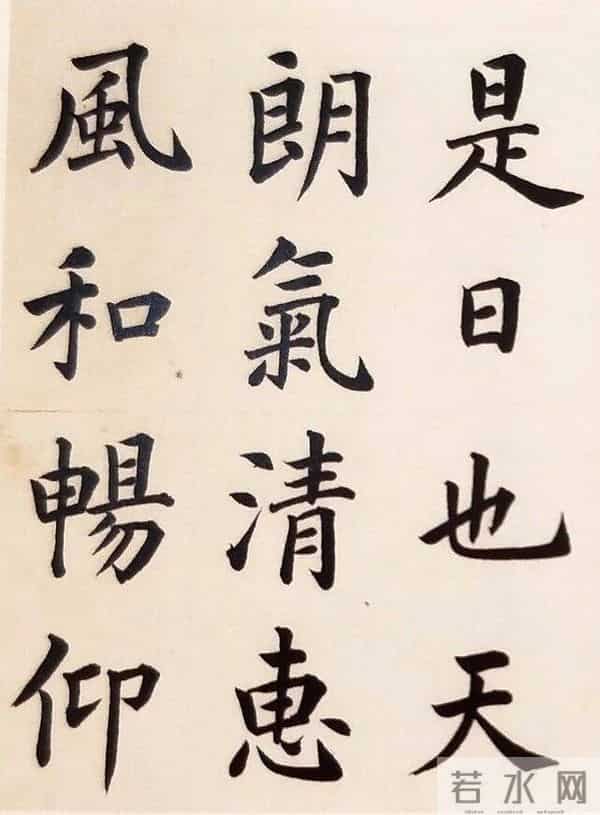 是日也天
朗氣清惠
風和暢仰
若水网